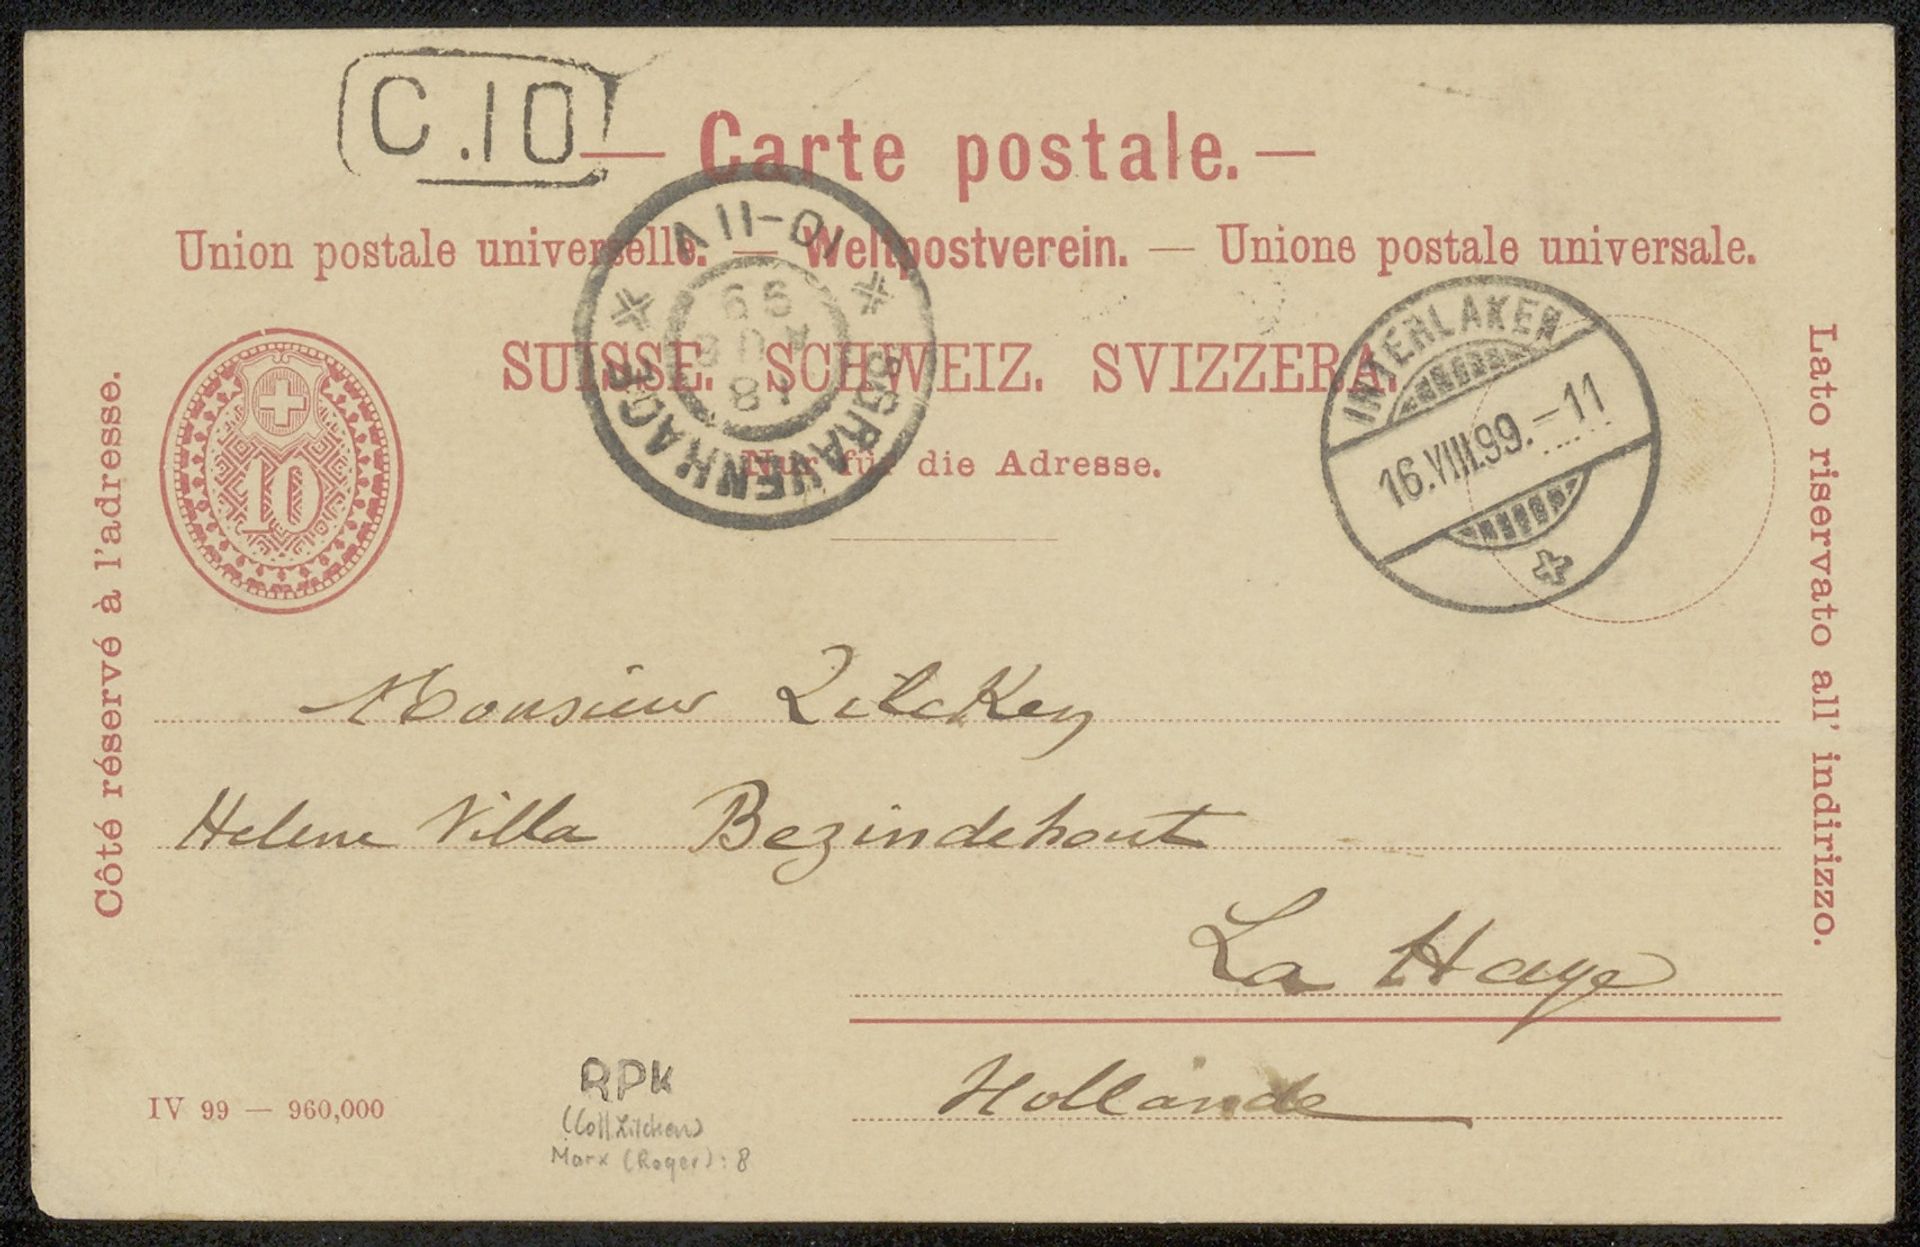 C.10
— Carte postale. —
Union postale universelle. — Weltpostverein. — Unione postale universale.
SUISSE. SCHWEIZ. SVIZZERA.
Nur für die Adresse.
'SGRAVENHAGE
10-11V
18
AUG
99
INTERLAKEN
16.VIII.99.–11
10
Côté réservé à l'adresse.
Lato riservato all' indirizzo.
Monsieur Zilcken
Helene Villa Bezindehout
La Haye
Hollande
IV 99 — 960,000
RPK
(Coll Zilcken)
Marx (Roger): 8